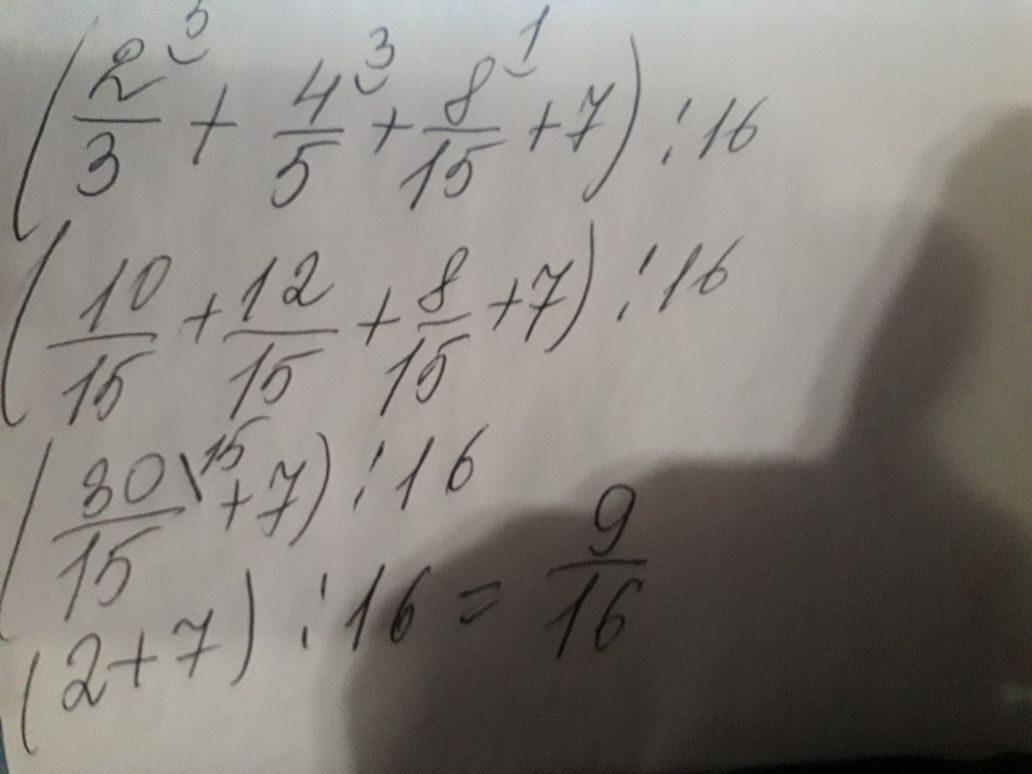 (2/3 ⁵ + 4/5 ³ + 8/15 ¹ + 7) : 16
(10/15 + 12/15 + 8/15 + 7) : 16
(30/15 \15 + 7) : 16
(2 + 7) : 16 = 9/16